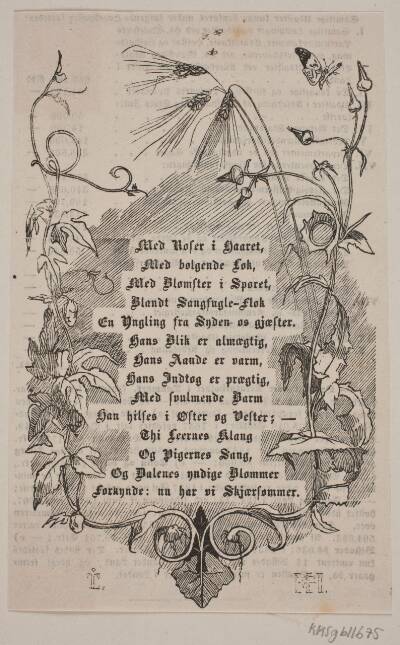 Med Roser i Haaret,
Med bølgende Lok,
Med Blomster i Sporet,
Blandt Sangfugle-Flok
En Yngling fra Syden os gjæster.
Hans Blik er almægtig,
Hans Aande er varm,
Hans Indtog er prægtig,
Med svulmende Barm
Han hilses i Øster og Vester; —
Thi Leernes Klang
Og Pigernes Sang,
Og Dalenes yndige Blommer
Forkynde: nu har vi Skjærsommer.
KKSgb11675